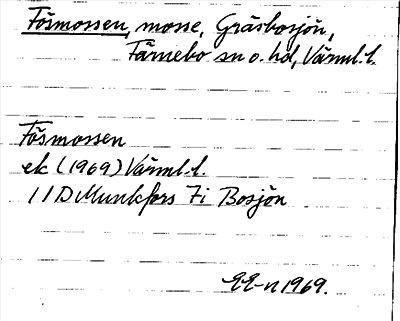 Fösmossen, mosse, Gräsbosjön,
Färnebo sn o. hd, Värml. l.
Fösmossen
ek (1969) Värml. l.
11D Munkfors 7i Bosjön
EE-n 1969.